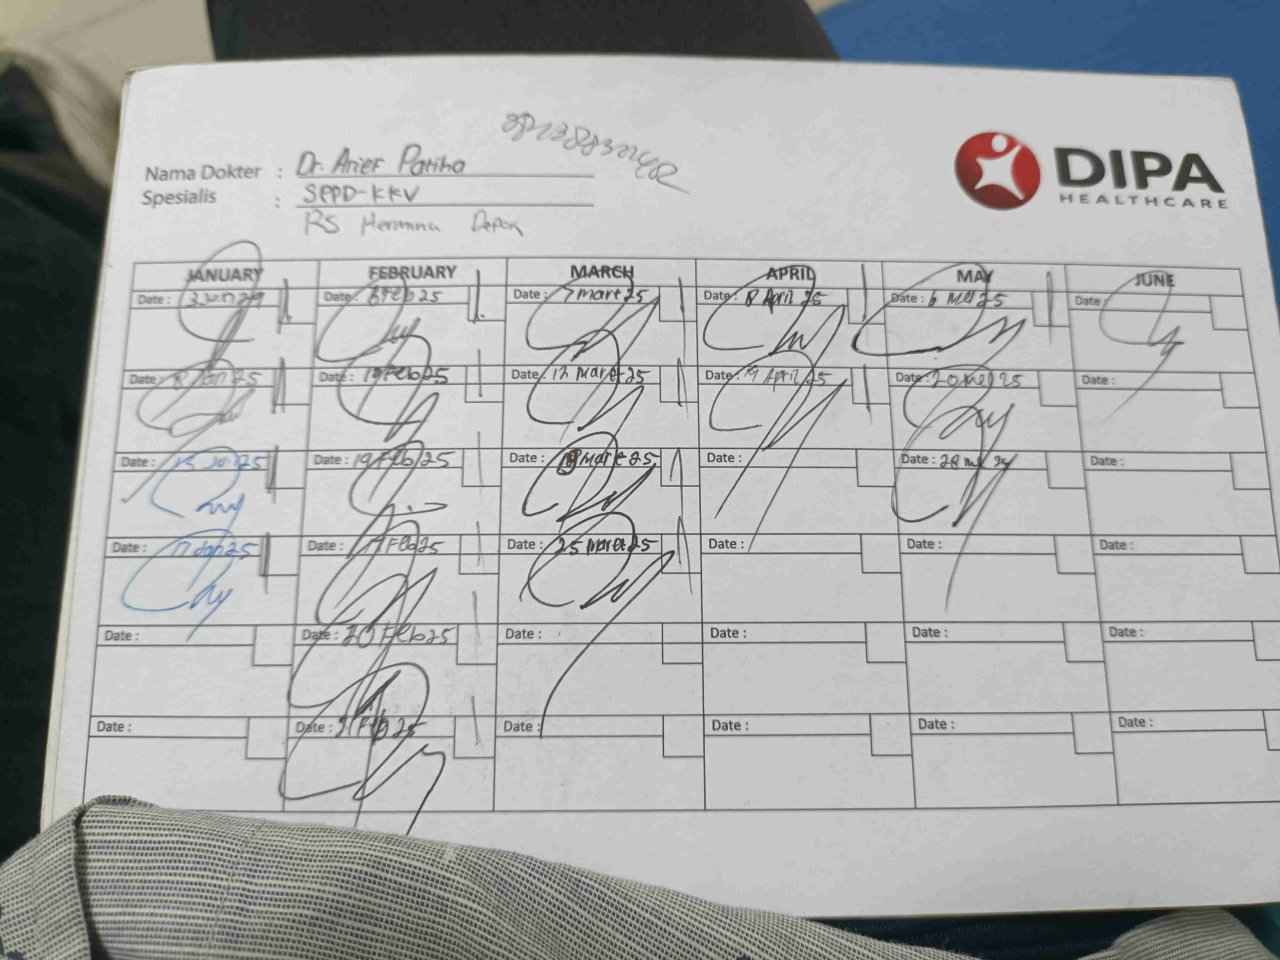 Nama Dokter : Dr. Arief Patiha
Spesialis : SPPD-KKV
RS Hermina Depok
DIPA
HEALTHCARE
JANUARY FEBRUARY MARCH APRIL MAY JUNE
Date : Date : Feb 25 Date : 7 maret 25 Date : 8 April 25 Date : 6 Mei 25 Date :
Date : Jan 25 Date : 19 Feb 25 Date : 12 Maret 25 Date : April 25 Date : 20 Mei 25 Date :
Date : 15 Jan 25 Date : 19 Feb 25 Date : 18 Maret 25 Date : Date : 28 Date :
Date : 17 Jan 25 Date : Feb 25 Date : 25 Maret 25 Date : Date : Date :
Date : Date : 20 Feb 25 Date : Date : Date : Date :
Date : Date : 21 Feb 25 Date : Date : Date : Date :